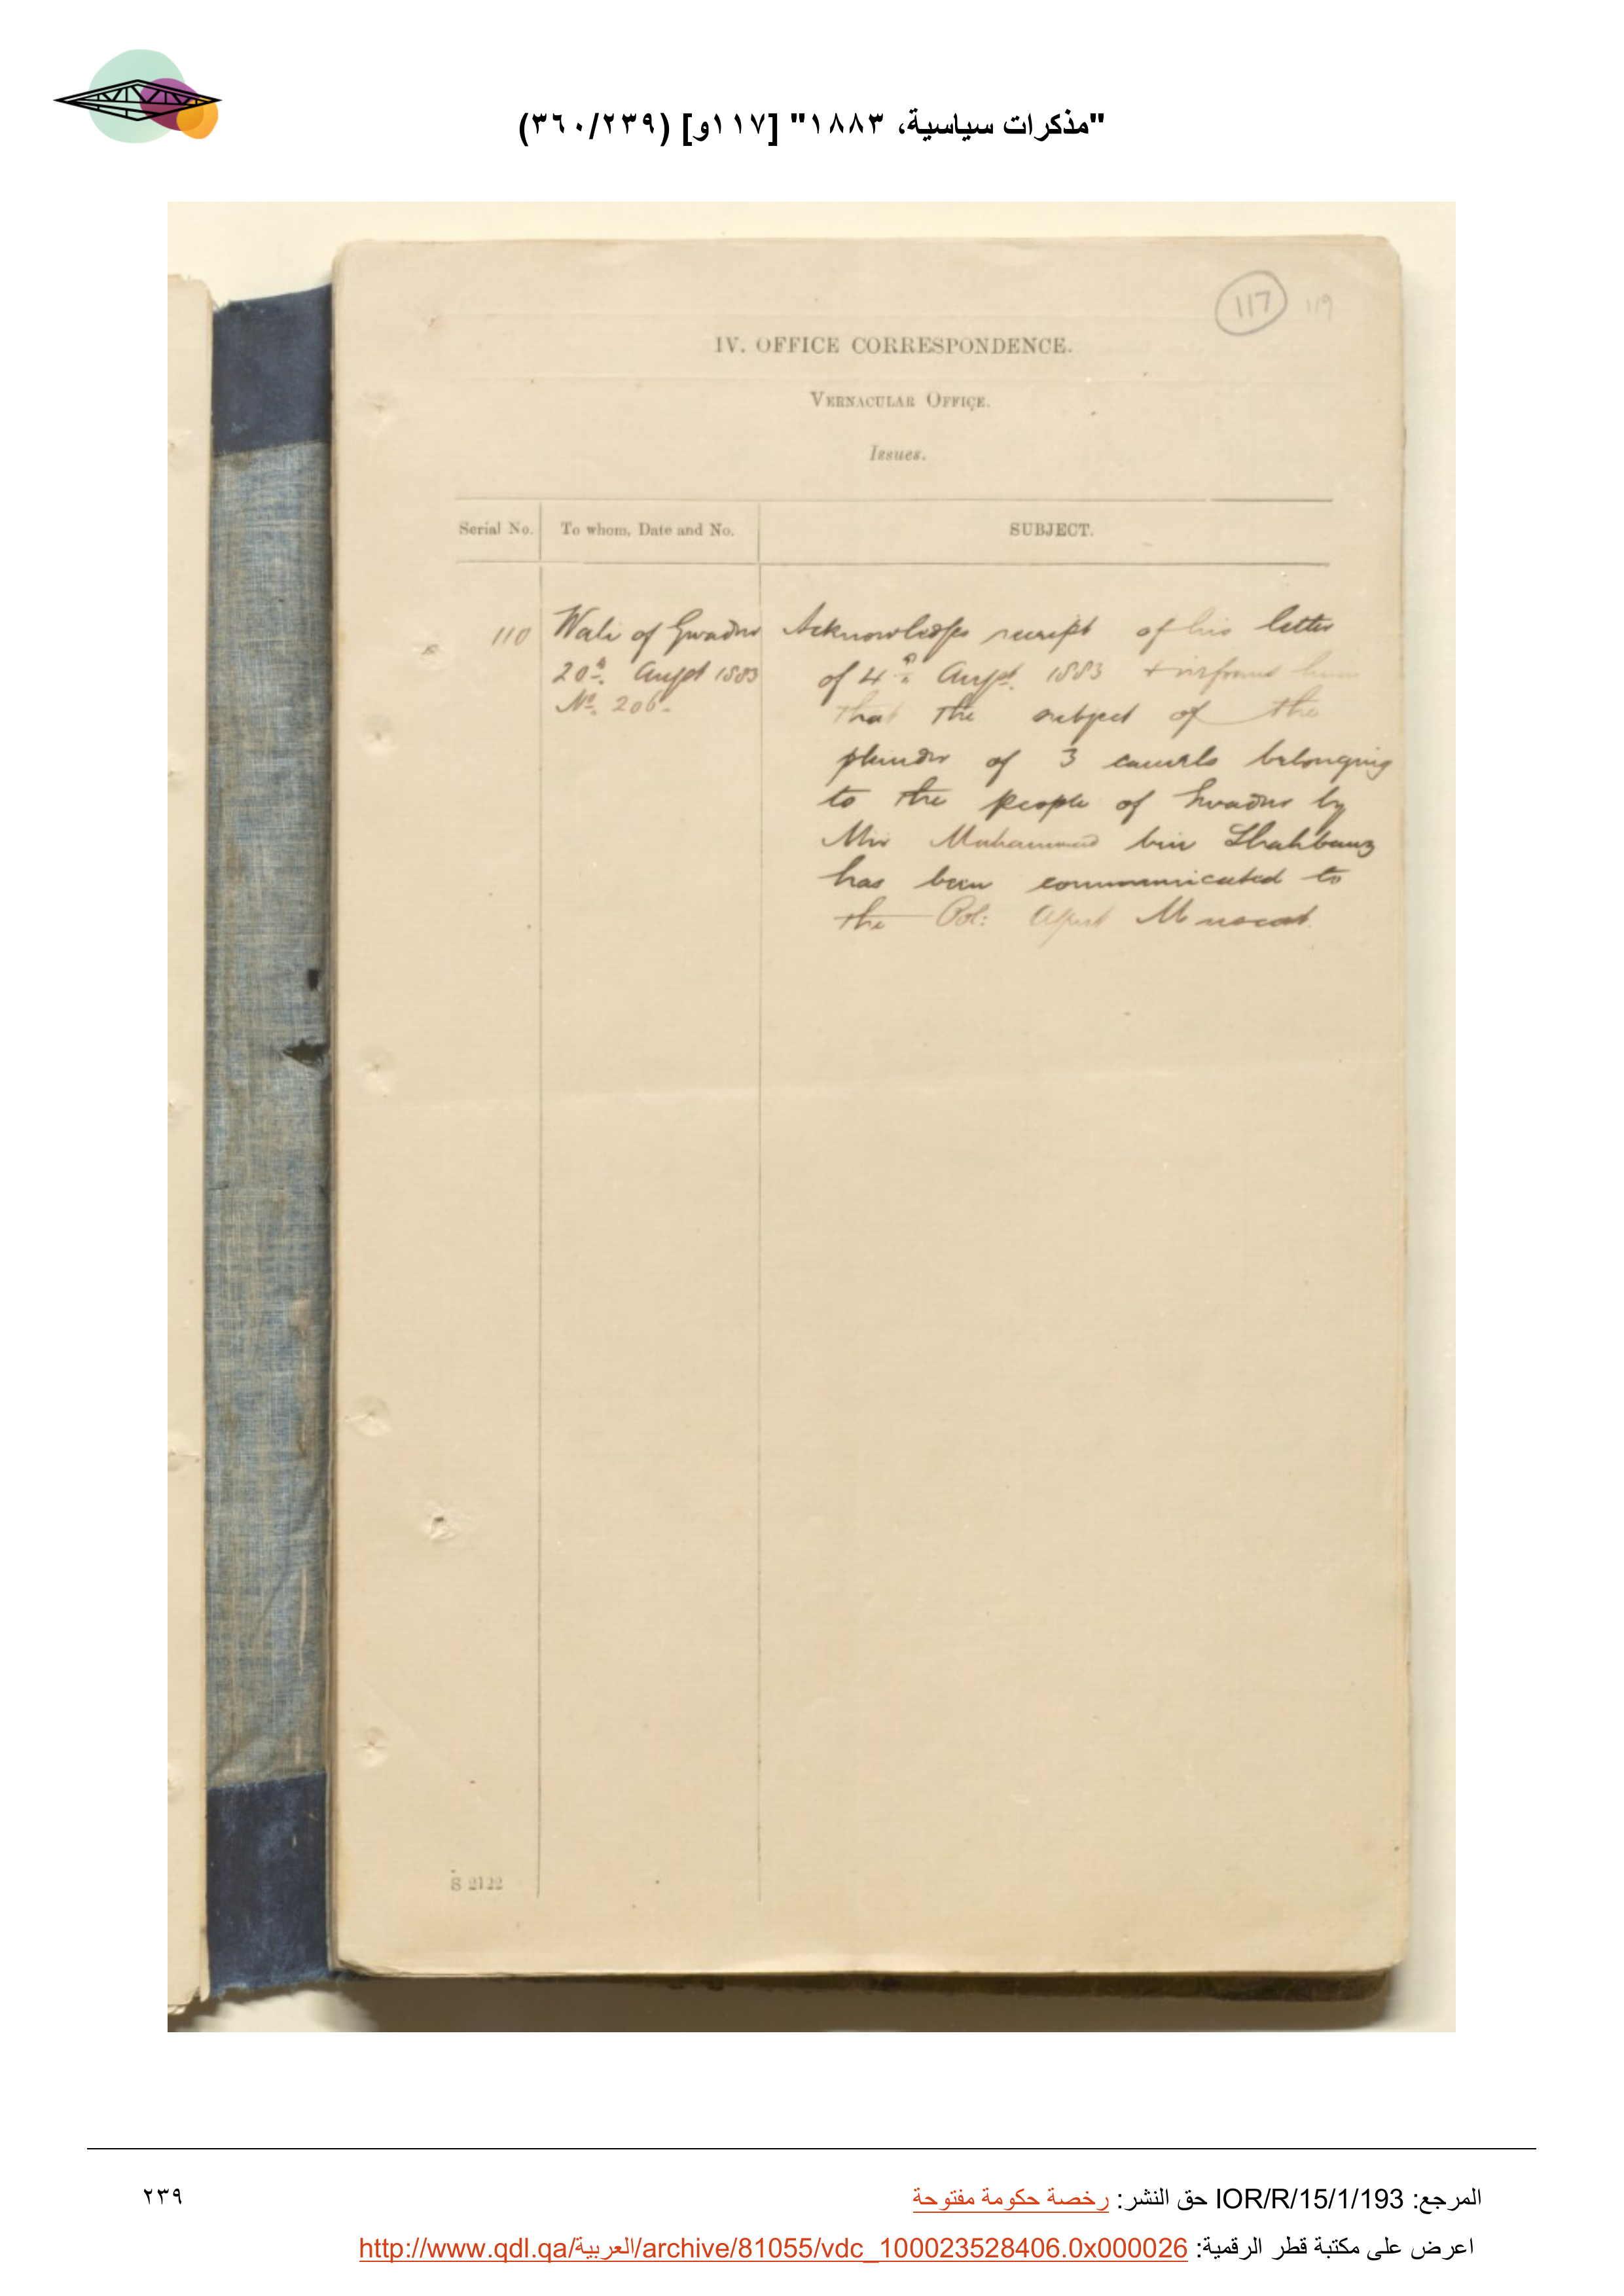 "مذكرات سياسية، ١٨٨٣" [١١٧و] (٣٦٠/٢٣٩)
117 119
IV. OFFICE CORRESPONDENCE.
VERNACULAR OFFICE.
Issues.
Serial No. To whom, Date and No. SUBJECT.
110 Wali of Gwadur Acknowledges receipt of his letter
20th. Augst 1883 of 4th Augst. 1883 & informs him
No. 206. that the subject of the
plunder of 3 camels belonging
to the people of Gwadur by
Mir Muhammad bin Shahbauz
has been communicated to
the Pol: Agent Muscat.
S 2122
المرجع: IOR/R/15/1/193 حق النشر: رخصة حكومة مفتوحة
٢٣٩
اعرض على مكتبة قطر الرقمية: http://www.qdl.qa/العربية/archive/81055/vdc_100023528406.0x000026